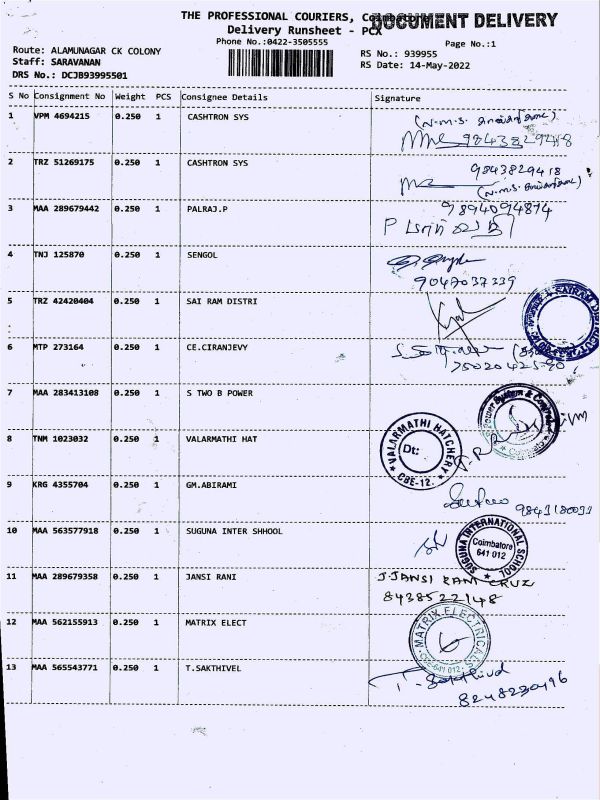 THE PROFESSIONAL COURIERS, Coimbatore
DOCUMENT DELIVERY
Delivery Runsheet - PCX
Phone No.:0422-3505555
Page No.:1
Route: ALAMUNAGAR CK COLONY
Staff: SARAVANAN
DRS No.: DCJB93995501
RS No.: 939955
RS Date: 14-May-2022
S No Consignment No Weight PCS Consignee Details Signature
1 VPM 4694215 0.250 1 CASHTRON SYS
9843829418
2 TRZ 51269175 0.250 1 CASHTRON SYS
9843829418
3 MAA 289679442 0.250 1 PALRAJ.P
9894094874
4 TNJ 125870 0.250 1 SENGOL
9047037339
5 TRZ 42420404 0.250 1 SAI RAM DISTRI
SAIRAM
6 MTP 273164 0.250 1 CE.CIRANJEVY
7 MAA 283413108 0.250 1 S TWO B POWER
Power System & Controls
Coimbatore
8 TNM 1023032 0.250 1 VALARMATHI HAT
VALARMATHI HATCHERY
Dt:
CBE-12.
9 KRG 4355704 0.250 1 GM.ABIRAMI
10 MAA 563577918 0.250 1 SUGUNA INTER SHHOOL
SUGUNA INTERNATIONAL SCHOOL
Coimbatore
641 012
11 MAA 289679358 0.250 1 JANSI RANI
J.JANSI RANI CRUZ
8438522148
12 MAA 562155913 0.250 1 MATRIX ELECT
MATRIX ELECTRICALS
CBE-641 012.
13 MAA 565543771 0.250 1 T.SAKTHIVEL
T. Sakthivel
8248230496